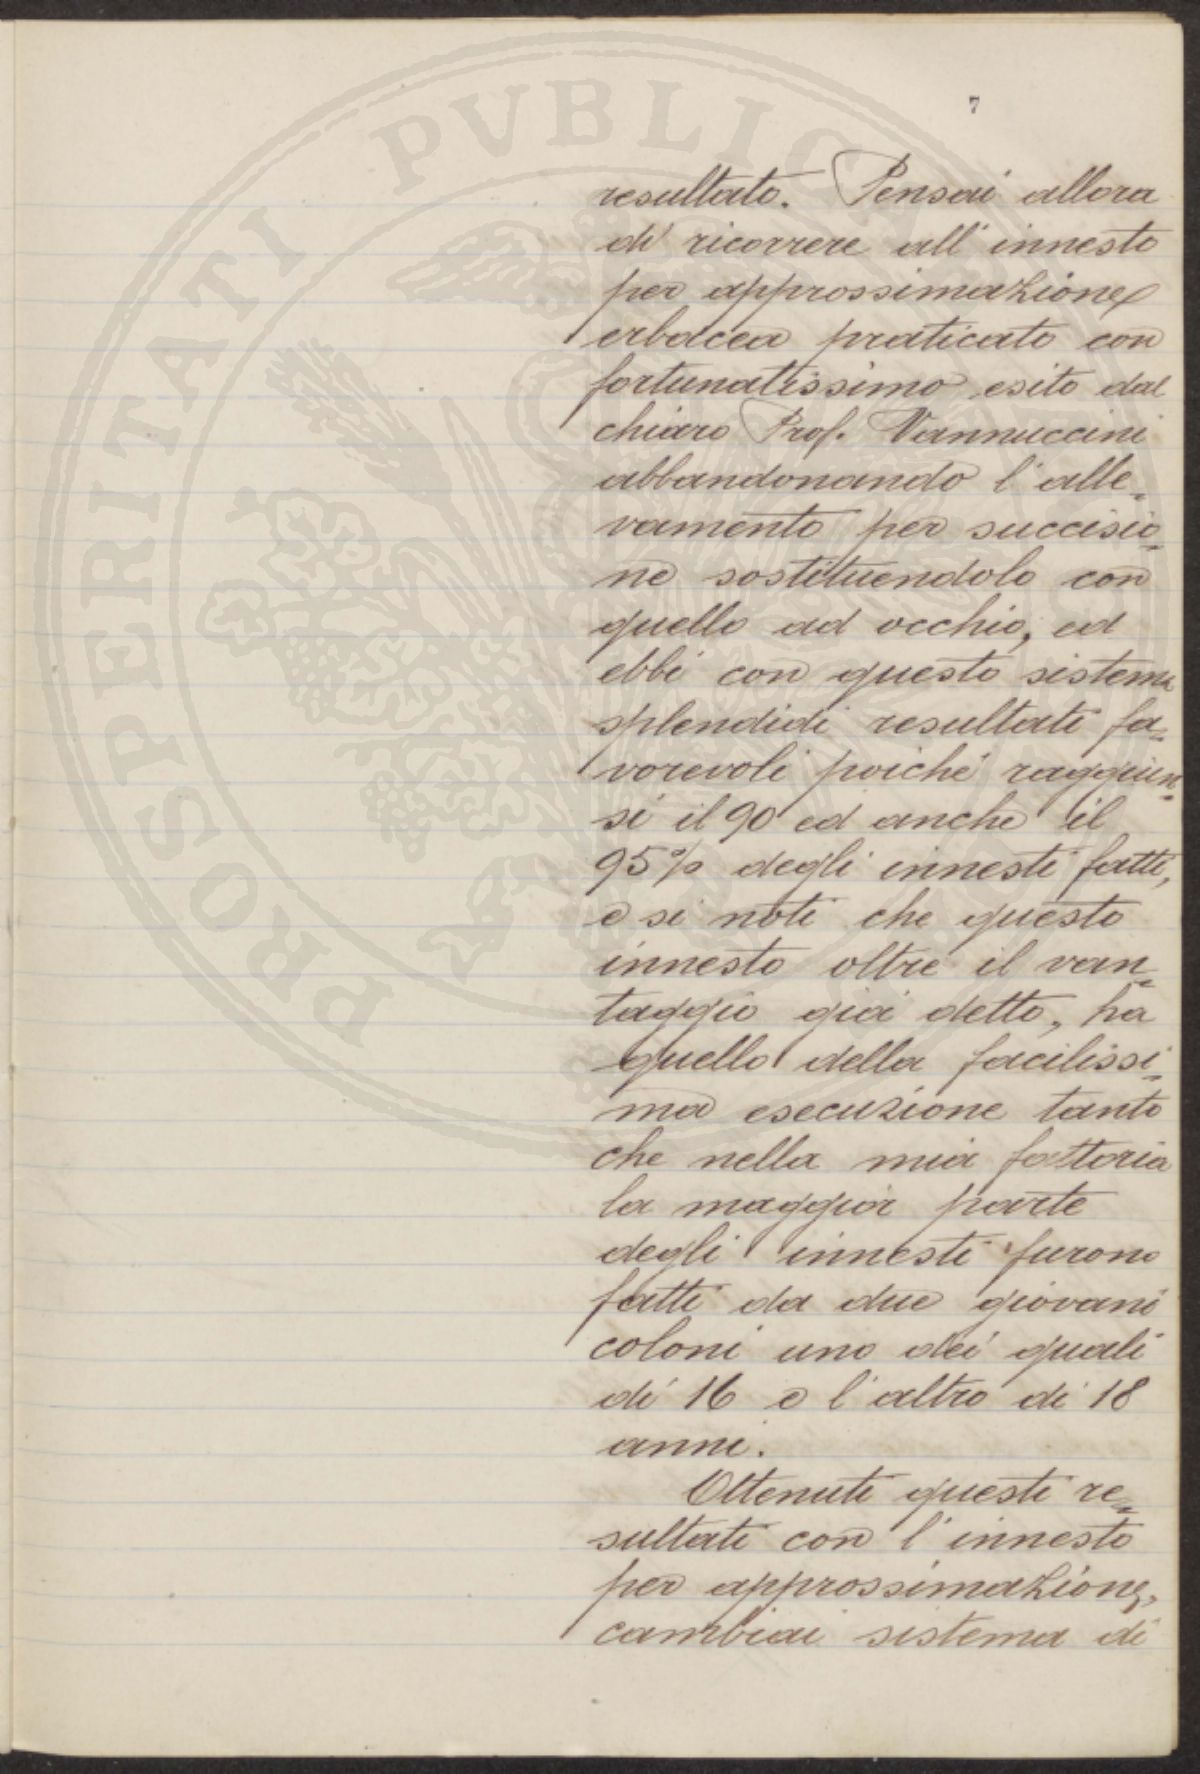 PROSPERITATI PVBLICAE
7
resultato. Pensai allora
di ricorrere all'innesto
per approssimazione
erbacea praticato con
fortunatissimo esito dal
chiaro Prof. Vannuccini
abbandonando l'alle-
vamento per succisio-
ne sostituendolo con
quello ad occhio, ed
ebbi con questo sistema
splendidi resultati fa-
vorevoli poiché raggiun-
si il 90 ed anche il
95% degli innesti fatti,
e si noti che questo
innesto oltre il van-
taggio già detto, ha
quello della facilissi-
ma esecuzione tanto
che nella mia fattoria
la maggior parte
degli innesti furono
fatti da due giovani
coloni uno dei quali
di 16 e l'altro di 18
anni.
Ottenuti questi re-
sultati con l'innesto
per approssimazione,
cambiai sistema di